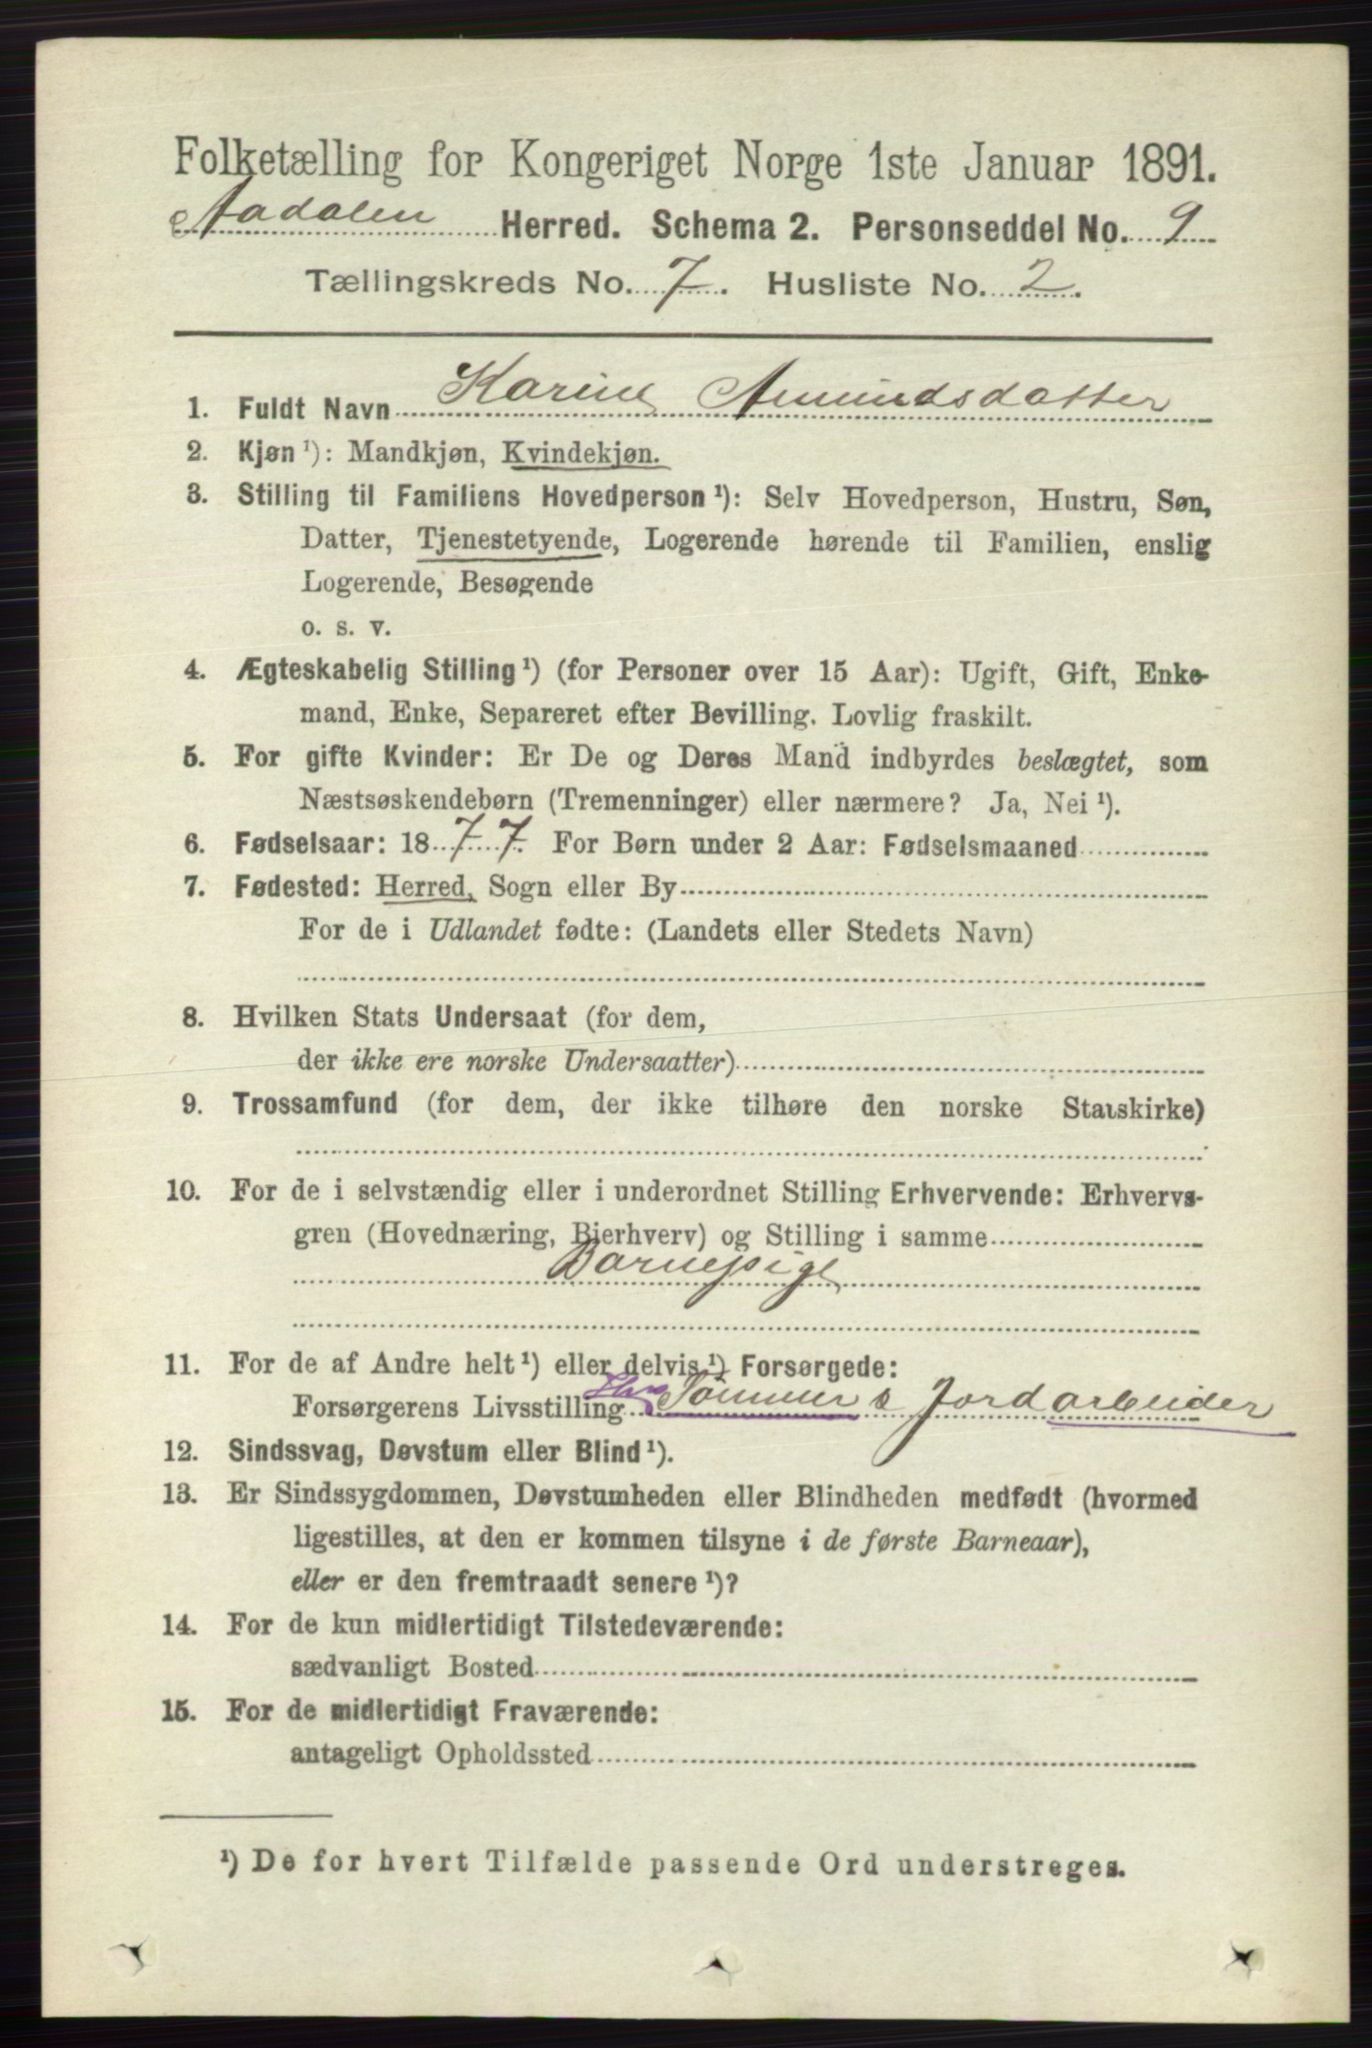 Folketælling for Kongeriget Norge 1ste Januar 1891.
Aadalen Herred. Schema 2. Personseddel No. 9
Tællingskreds No. 7. Husliste No. 2.
1. Fuldt Navn Karine Amundsdatter
2. Kjøn ¹): Mandkjøn, Kvindekjøn.
3. Stilling til Familiens Hovedperson ¹): Selv Hovedperson, Hustru, Søn,
Datter, Tjenestetyende, Logerende hørende til Familien, enslig
Logerende, Besøgende
o. s. v.
4. Ægteskabelig Stilling ¹) (for Personer over 15 Aar): Ugift, Gift, Enke-
mand, Enke, Separeret efter Bevilling. Lovlig fraskilt.
5. For gifte Kvinder: Er De og Deres Mand indbyrdes beslægtet, som
Næstsøskendebørn (Tremenninger) eller nærmere? Ja, Nei ¹).
6. Fødselsaar: 1877. For Børn under 2 Aar: Fødselsmaaned
7. Fødested: Herred, Sogn eller By
For de i Udlandet fødte: (Landets eller Stedets Navn)
8. Hvilken Stats Undersaat (for dem,
der ikke ere norske Undersaatter)
9. Trossamfund (for dem, der ikke tilhøre den norske Statskirke)
10. For de i selvstændig eller i underordnet Stilling Erhvervende: Erhvervs-
gren (Hovednæring, Bierhverv) og Stilling i samme
Barnepige
11. For de af Andre helt ¹) eller delvis ¹) Forsørgede:
Forsørgerens Livsstilling Tømmer & Jordarbeider
12. Sindssvag, Døvstum eller Blind ¹).
13. Er Sindssygdommen, Døvstumheden eller Blindheden medfødt (hvormed
ligestilles, at den er kommen tilsyne i de første Barneaar),
eller er den fremtraadt senere ¹)?
14. For de kun midlertidigt Tilstedeværende:
sædvanligt Bosted
15. For de midlertidigt Fraværende:
antageligt Opholdssted
¹) De for hvert Tilfælde passende Ord understreges.